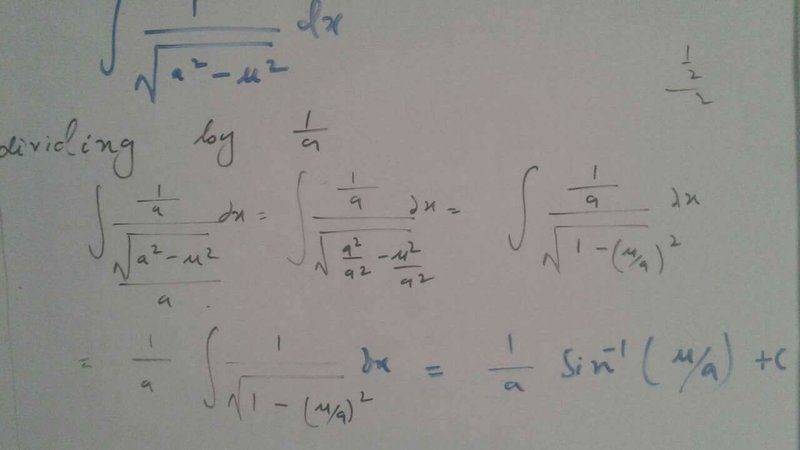 ∫ 1/√(a² − x²) dx
1/2/2
dividing by 1/a
∫ (1/a)/(√(a² − x²)/a) dx = ∫ (1/a)/√(a²/a² − x²/a²) dx = ∫ (1/a)/√(1 − (x/a)²) dx
= 1/a ∫ 1/√(1 − (x/a)²) dx = 1/a Sin⁻¹ (x/a) + c